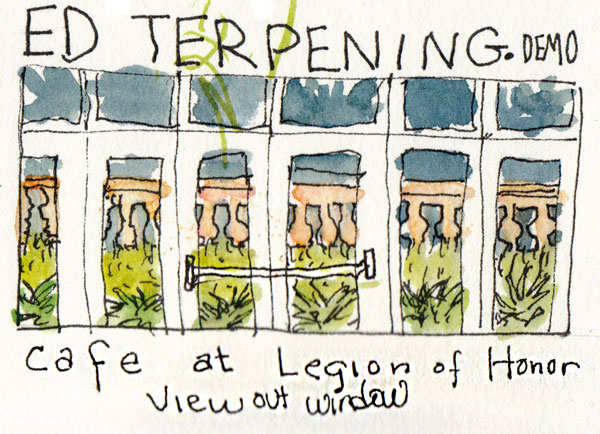 ED TERPENING. DEMO
Cafe at Legion of Honor
View out window